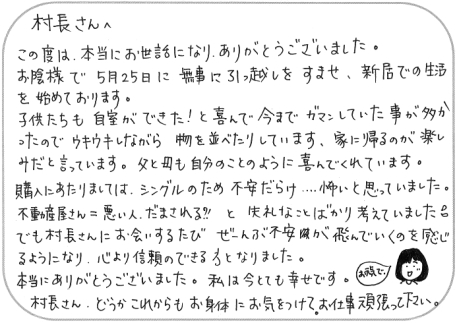 村長さんへ
この度は、本当にお世話になり、ありがとうございました。
お陰様で 5月25日に 無事に引っ越しを すませ、新居での生活
を 始めております。
子供たちも 自室ができた!と 喜んで 今まで ガマンしていた 事が 多か
ったので ウキウキしながら 物を並べたりしています、家に帰るのが楽し
みだと言っています。父と母も自分のことのように喜んでくれています。
購入にあたりましては、シングルのため 不安だらけ....怖いと思っていました。
不動産屋さん=悪い人、だまされる!! と 失礼なことばかり 考えていました
でも村長さんに お会いするたび ぜーんぶ不安が飛んでいくのを感じ
るようになり、心より信頼のできる方となりました。
本当にありがとうございました。私は今とても幸せです。
お元気で
村長さん、どうかこれからも お身体に お気をつけて。お仕事頑張って下さい。